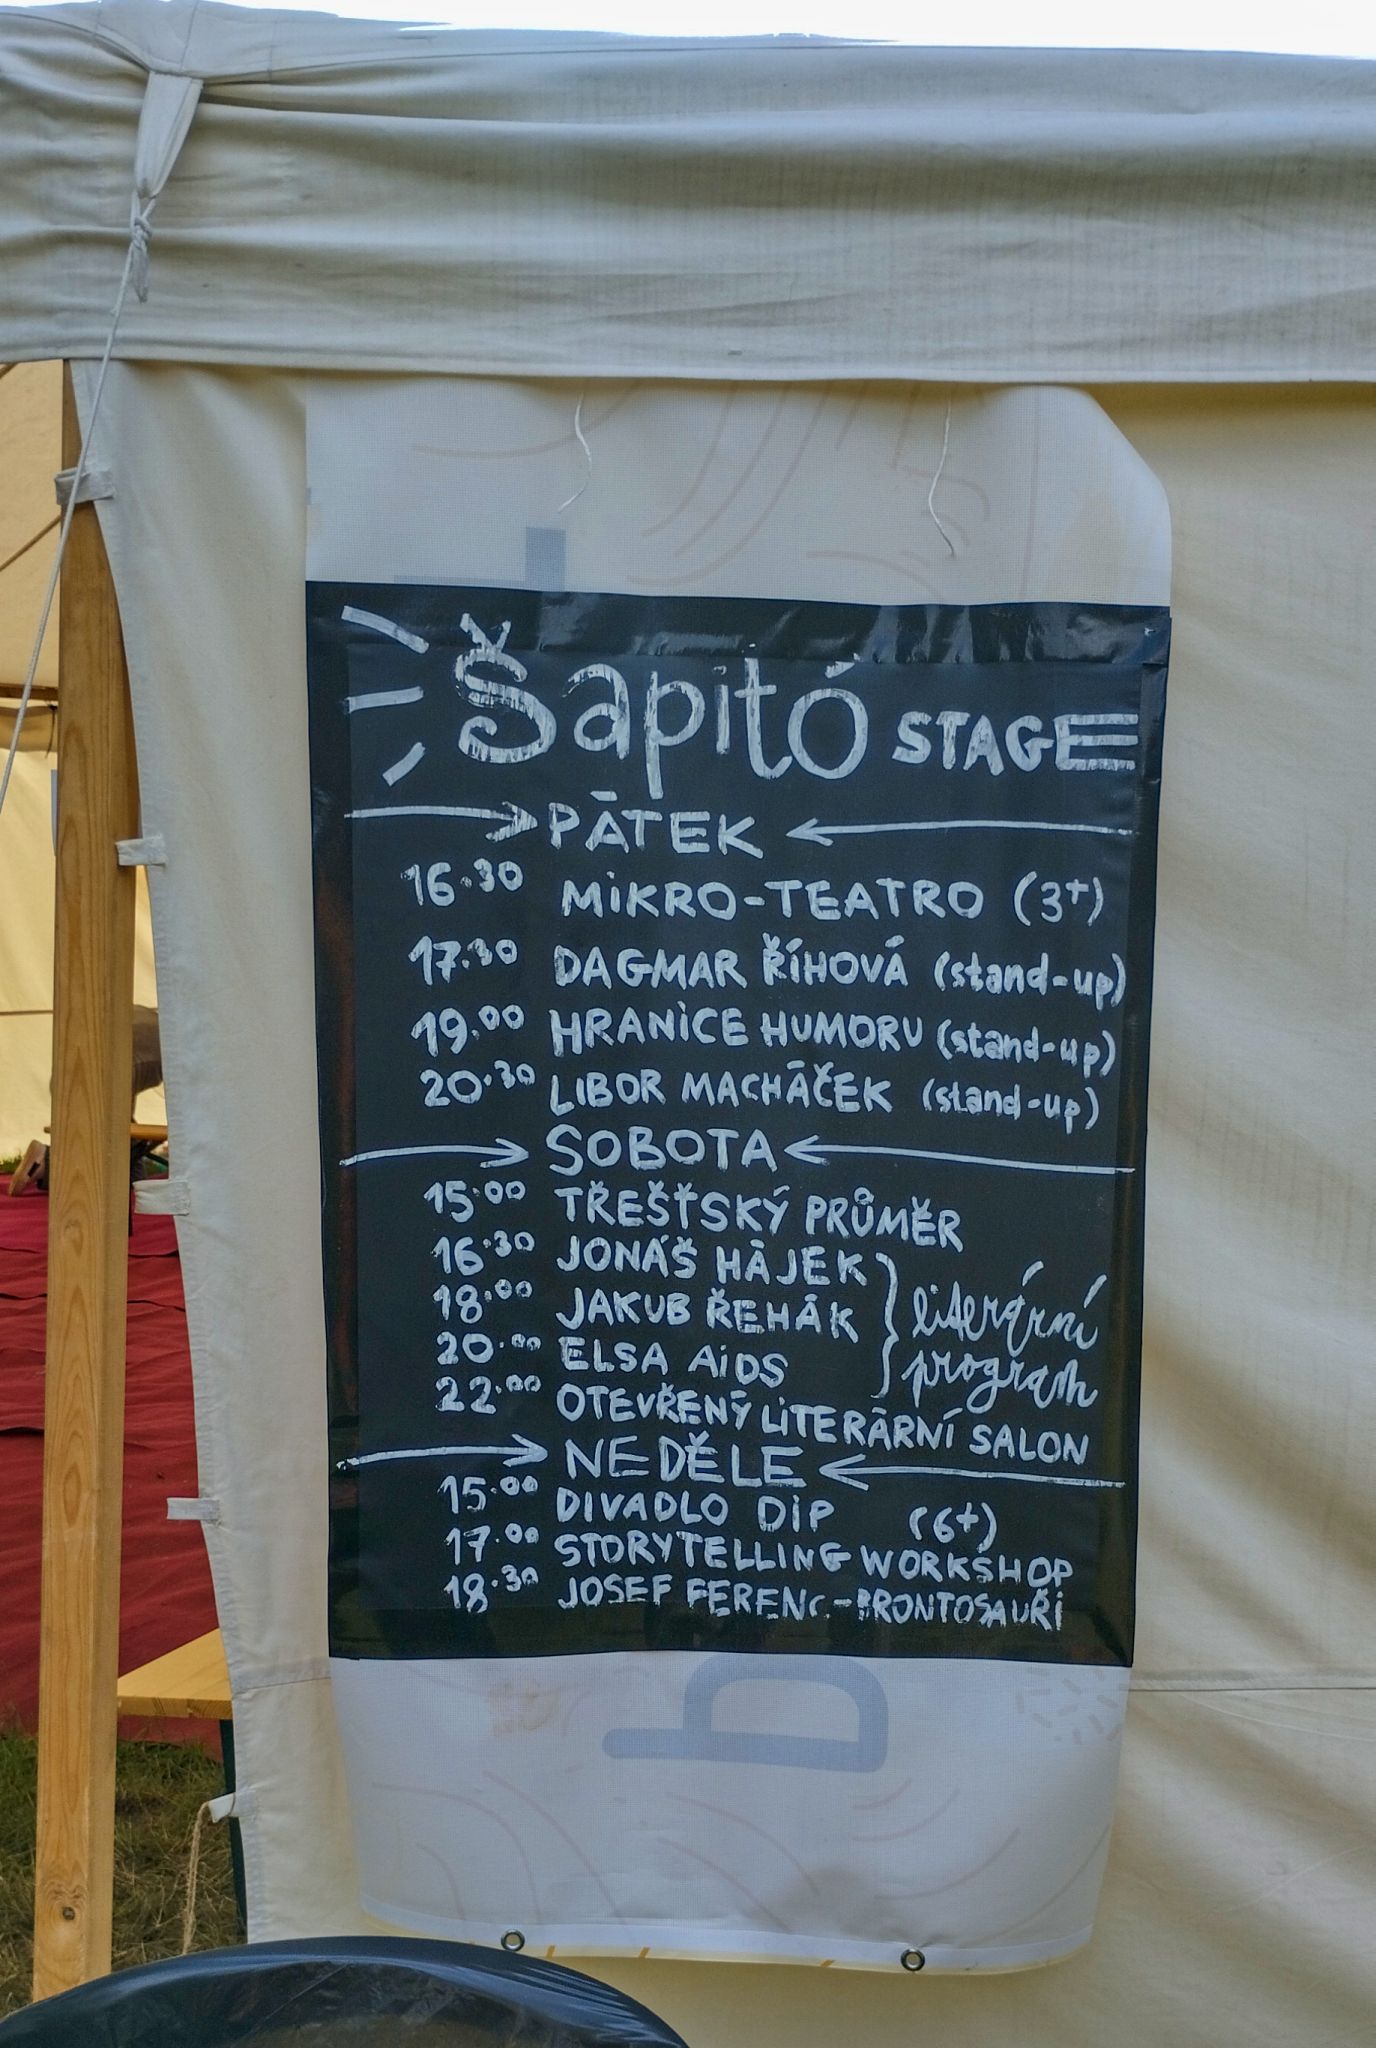 Šapitó STAGE
PÁTEK
16.30 MIKRO-TEATRO (3+)
17.30 DAGMAR ŘÍHOVÁ (stand-up)
19.00 HRANICE HUMORU (stand-up)
20.30 LIBOR MACHÁČEK (stand-up)
SOBOTA
15.00 TŘEŠŤSKÝ PRŮMĚR
16.30 JONÁŠ HÁJEK
18.00 JAKUB ŘEHÁK
literární
20.00 ELSA AIDS
program
22.00 OTEVŘENÝ LITERÁRNÍ SALON
NEDĚLE
15.00 DIVADLO DIP (6+)
17.00 STORYTELLING WORKSHOP
18.30 JOSEF FERENC-BRONTOSAUŘI